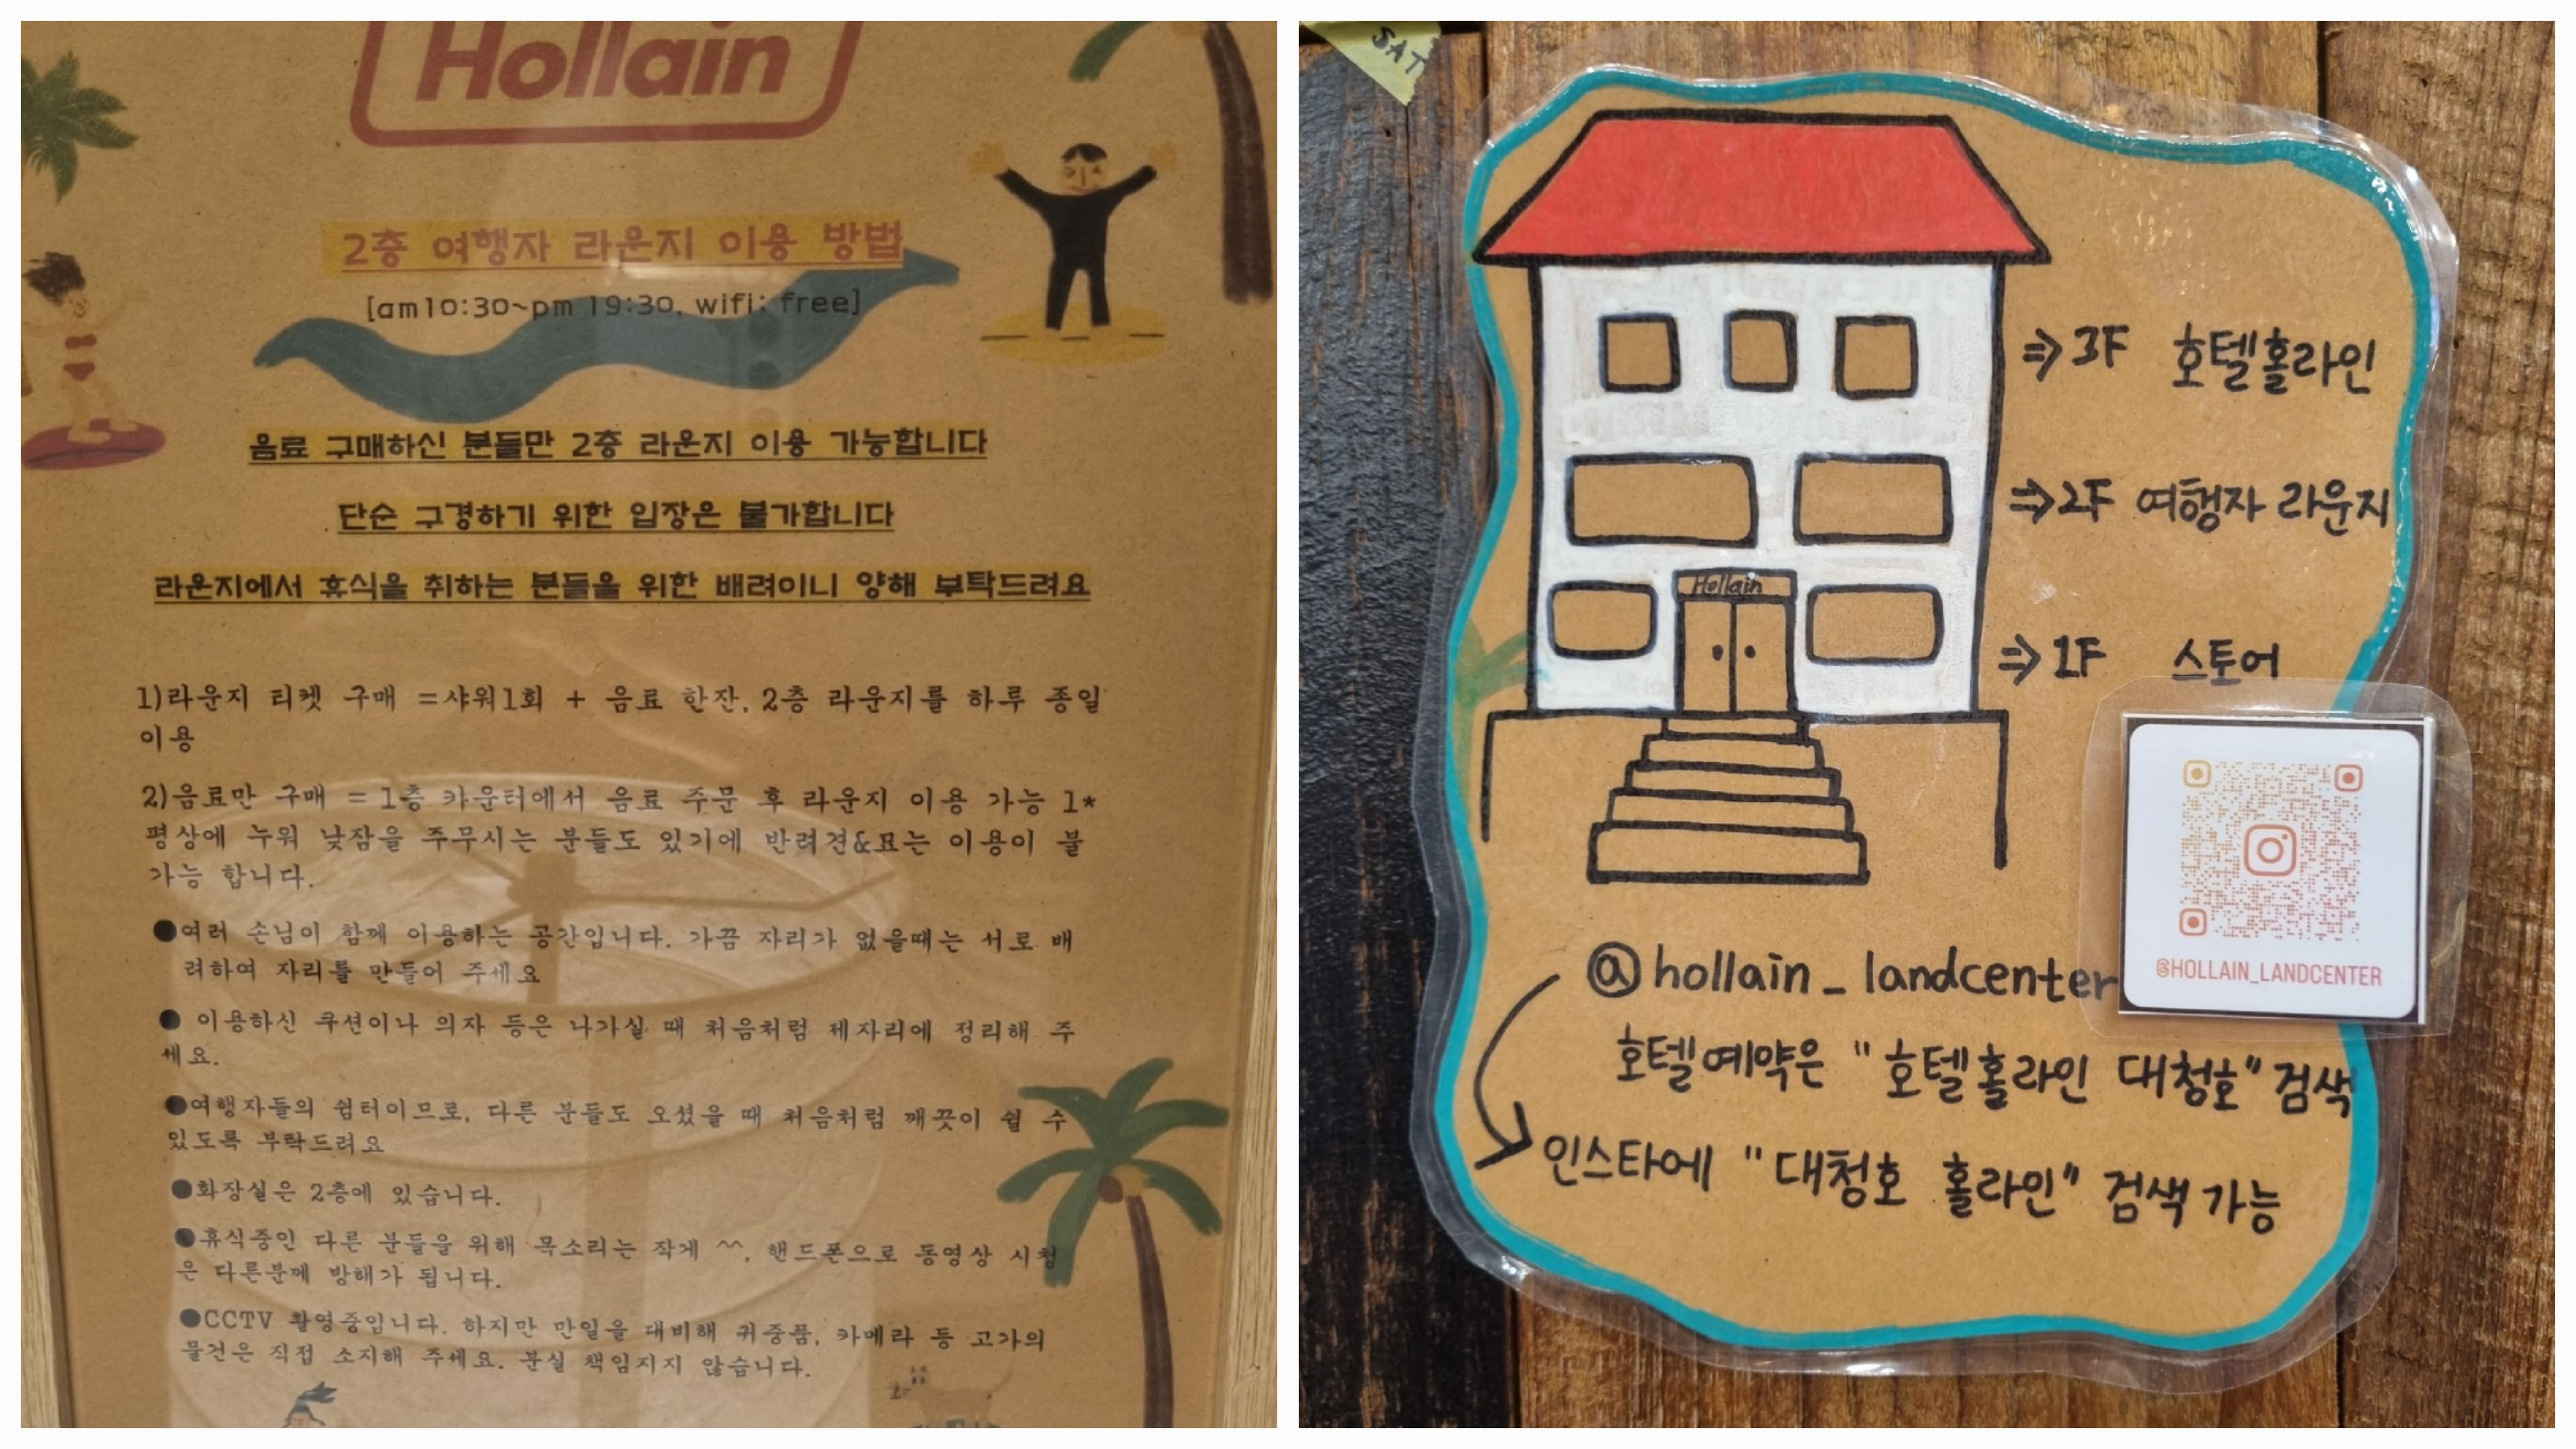 Hollain
2층 여행자 라운지 이용 방법
[am10:30~pm 19:30, wifi: free]
음료 구매하신 분들만 2층 라운지 이용 가능합니다
단순 구경하기 위한 입장은 불가합니다
라운지에서 휴식을 취하는 분들을 위한 배려이니 양해 부탁드려요
1)라운지 티켓 구매 =샤워1회 + 음료 한잔, 2층 라운지를 하루 종일
이용
2)음료만 구매 =1층 카운터에서 음료 주문 후 라운지 이용 가능 1*
평상에 누워 낮잠을 주무시는 분들도 있기에 반려견&묘는 이용이 불
가능 합니다.
●여러 손님이 함께 이용하는 공간입니다. 가끔 자리가 없을때는 서로 배
려하여 자리를 만들어 주세요
● 이용하신 쿠션이나 의자 등은 나가실 때 처음처럼 제자리에 정리해 주
세요.
●여행자들의 쉼터이므로, 다른 분들도 오셨을 때 처음처럼 깨끗이 쉴 수
있도록 부탁드려요
●화장실은 2층에 있습니다.
●휴식중인 다른 분들을 위해 목소리는 작게 ^^, 핸드폰으로 동영상 시청
은 다른분께 방해가 됩니다.
●CCTV 촬영중입니다. 하지만 만일을 대비해 귀중품, 카메라 등 고가의
물건은 직접 소지해 주세요. 분실 책임지지 않습니다.
SAT
⇒3F 호텔홀라인
⇒2F 여행자 라운지
Hollain
⇒1F 스토어
@HOLLAIN_LANDCENTER
@hollain_landcenter
호텔예약은 "호텔홀라인 대청호" 검색
인스타에 "대청호 홀라인" 검색가능